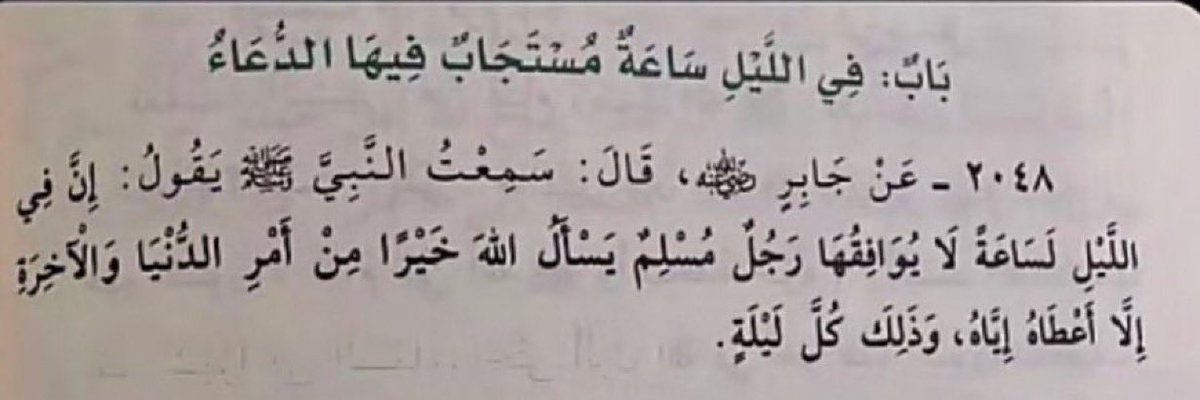 بَابٌ: فِي اللَّيْلِ سَاعَةٌ مُسْتَجَابٌ فِيهَا الدُّعَاءُ
٢٠٤٨ ـ عَنْ جَابِرٍ رضي الله عنه، قَالَ: سَمِعْتُ النَّبِيَّ ﷺ يَقُولُ: إِنَّ فِي
اللَّيْلِ لَسَاعَةً لَا يُوَافِقُهَا رَجُلٌ مُسْلِمٌ يَسْأَلُ اللهَ خَيْرًا مِنْ أَمْرِ الدُّنْيَا وَالْآخِرَةِ
إِلَّا أَعْطَاهُ إِيَّاهُ، وَذَلِكَ كُلَّ لَيْلَةٍ.